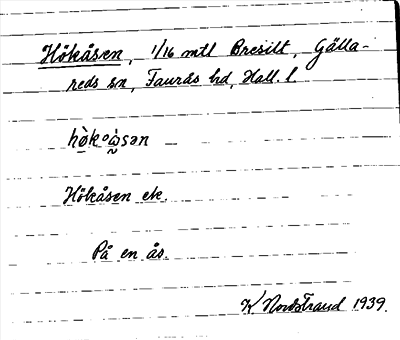 Hökåsen, 1/16 mtl Bresilt, Gälla-
reds sn, Faurås hd, Hall. l.
Hökåsen ek.
På en ås.
K Nordstrand 1939.